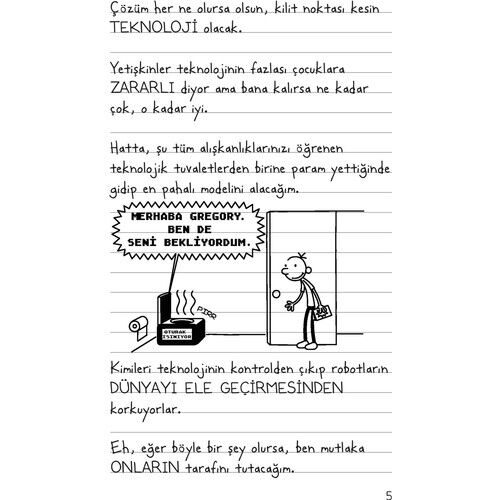 Çözüm her ne olursa olsun, kilit noktası kesin
TEKNOLOJİ olacak.
Yetişkinler teknolojinin fazlası çocuklara
ZARARLI diyor ama bana kalırsa ne kadar
çok, o kadar iyi.
Hatta, şu tüm alışkanlıklarınızı öğrenen
teknolojik tuvaletlerden birine param yettiğinde
gidip en pahalı modelini alacağım.
MERHABA GREGORY.
BEN DE
SENİ BEKLİYORDUM.
OTURAK
ISINIYOR
Kimileri teknolojinin kontrolden çıkıp robotların
DÜNYAYI ELE GEÇİRMESİNDEN
korkuyorlar.
Eh, eğer böyle bir şey olursa, ben mutlaka
ONLARIN tarafını tutacağım.
5